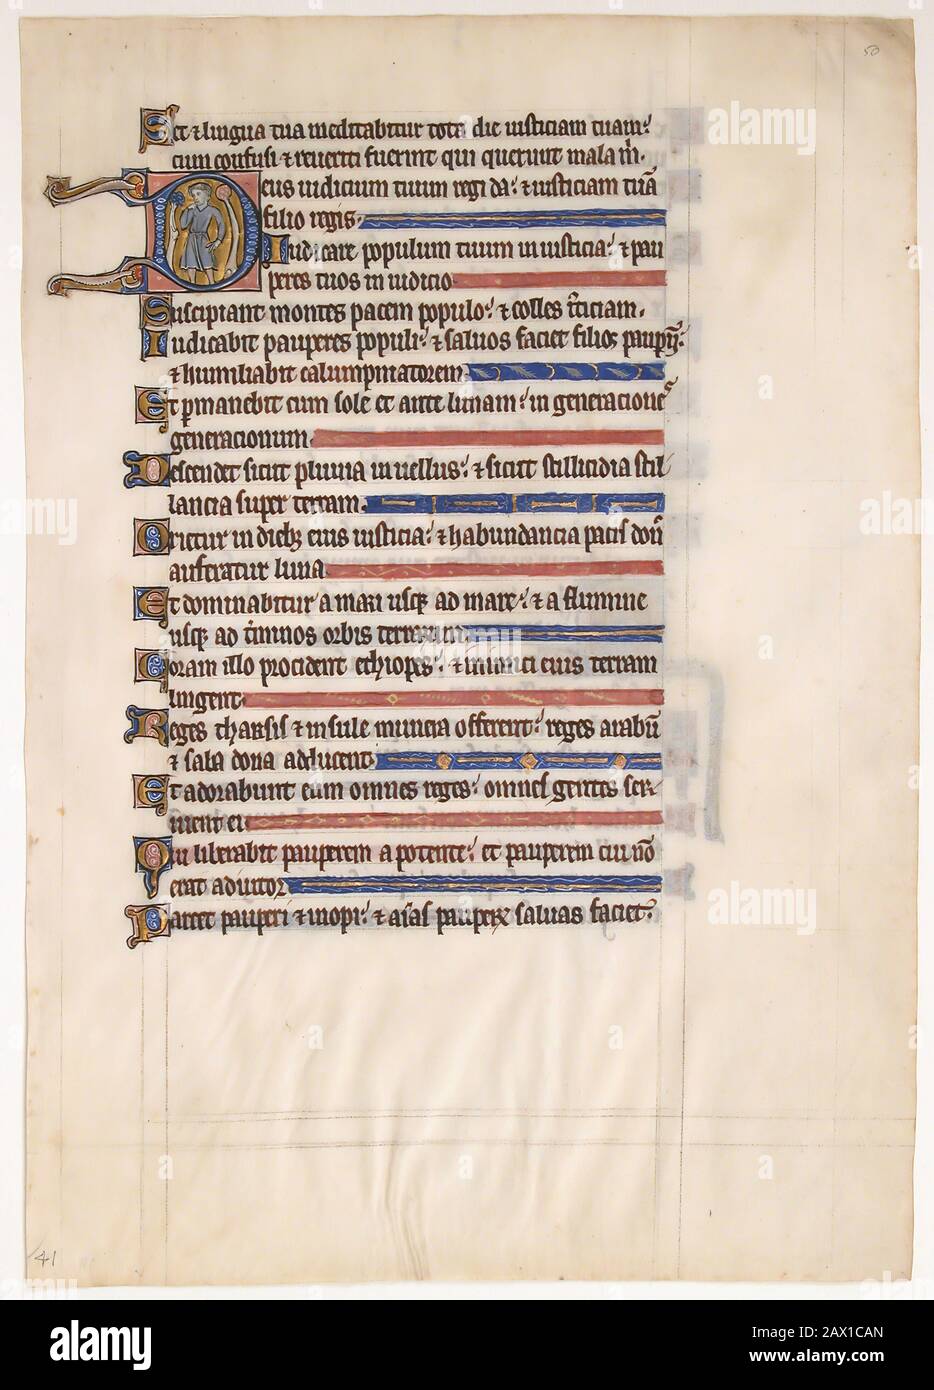 50
Set & lingua tua meditabitur tota die iusticiam tuam:
cum confusi & reuerti fuerint qui querunt mala m̄.
Deus iudicium tuum regi da: & iusticiam tuā
filio regis.
Iudicare populum tuum in iusticia: & pau
peres tuos in iudicio
Suscipiant montes pacem populo: & colles iticiam.
Iudicabit pauperes populi: & saluos faciet filios paupꝝ:
& humiliabit calumpniatorem.
Et ꝑmanebit cum sole et ante lunam: in generacione
generacionum.
Descendet sicut pluuia in uellus: & sicut stillicidia stil
lancia super terram.
Orietur in dieb; eius iusticia: & habundancia pacis don̄
auferatur luna.
Et dominabitur a mari usq; ad mare: & a flumine
usq; ad t̄minos orbis terrarum.
Coram illo procident ethiopes: & inimici eius terram
lingent.
Reges tharsis & insule munera offerent: reges arabū
& saba dona adducent.
Et adorabunt eum omnes reges: omnes gentes ser
uient ei
Qui liberabit pauperem a potente: et pauperem cui nō
erat adiutor
Parcet pauperi & inopi: & aīas pauperꝝ saluas faciet:
41
alamy
Image ID: 2AX1CAN
www.alamy.com